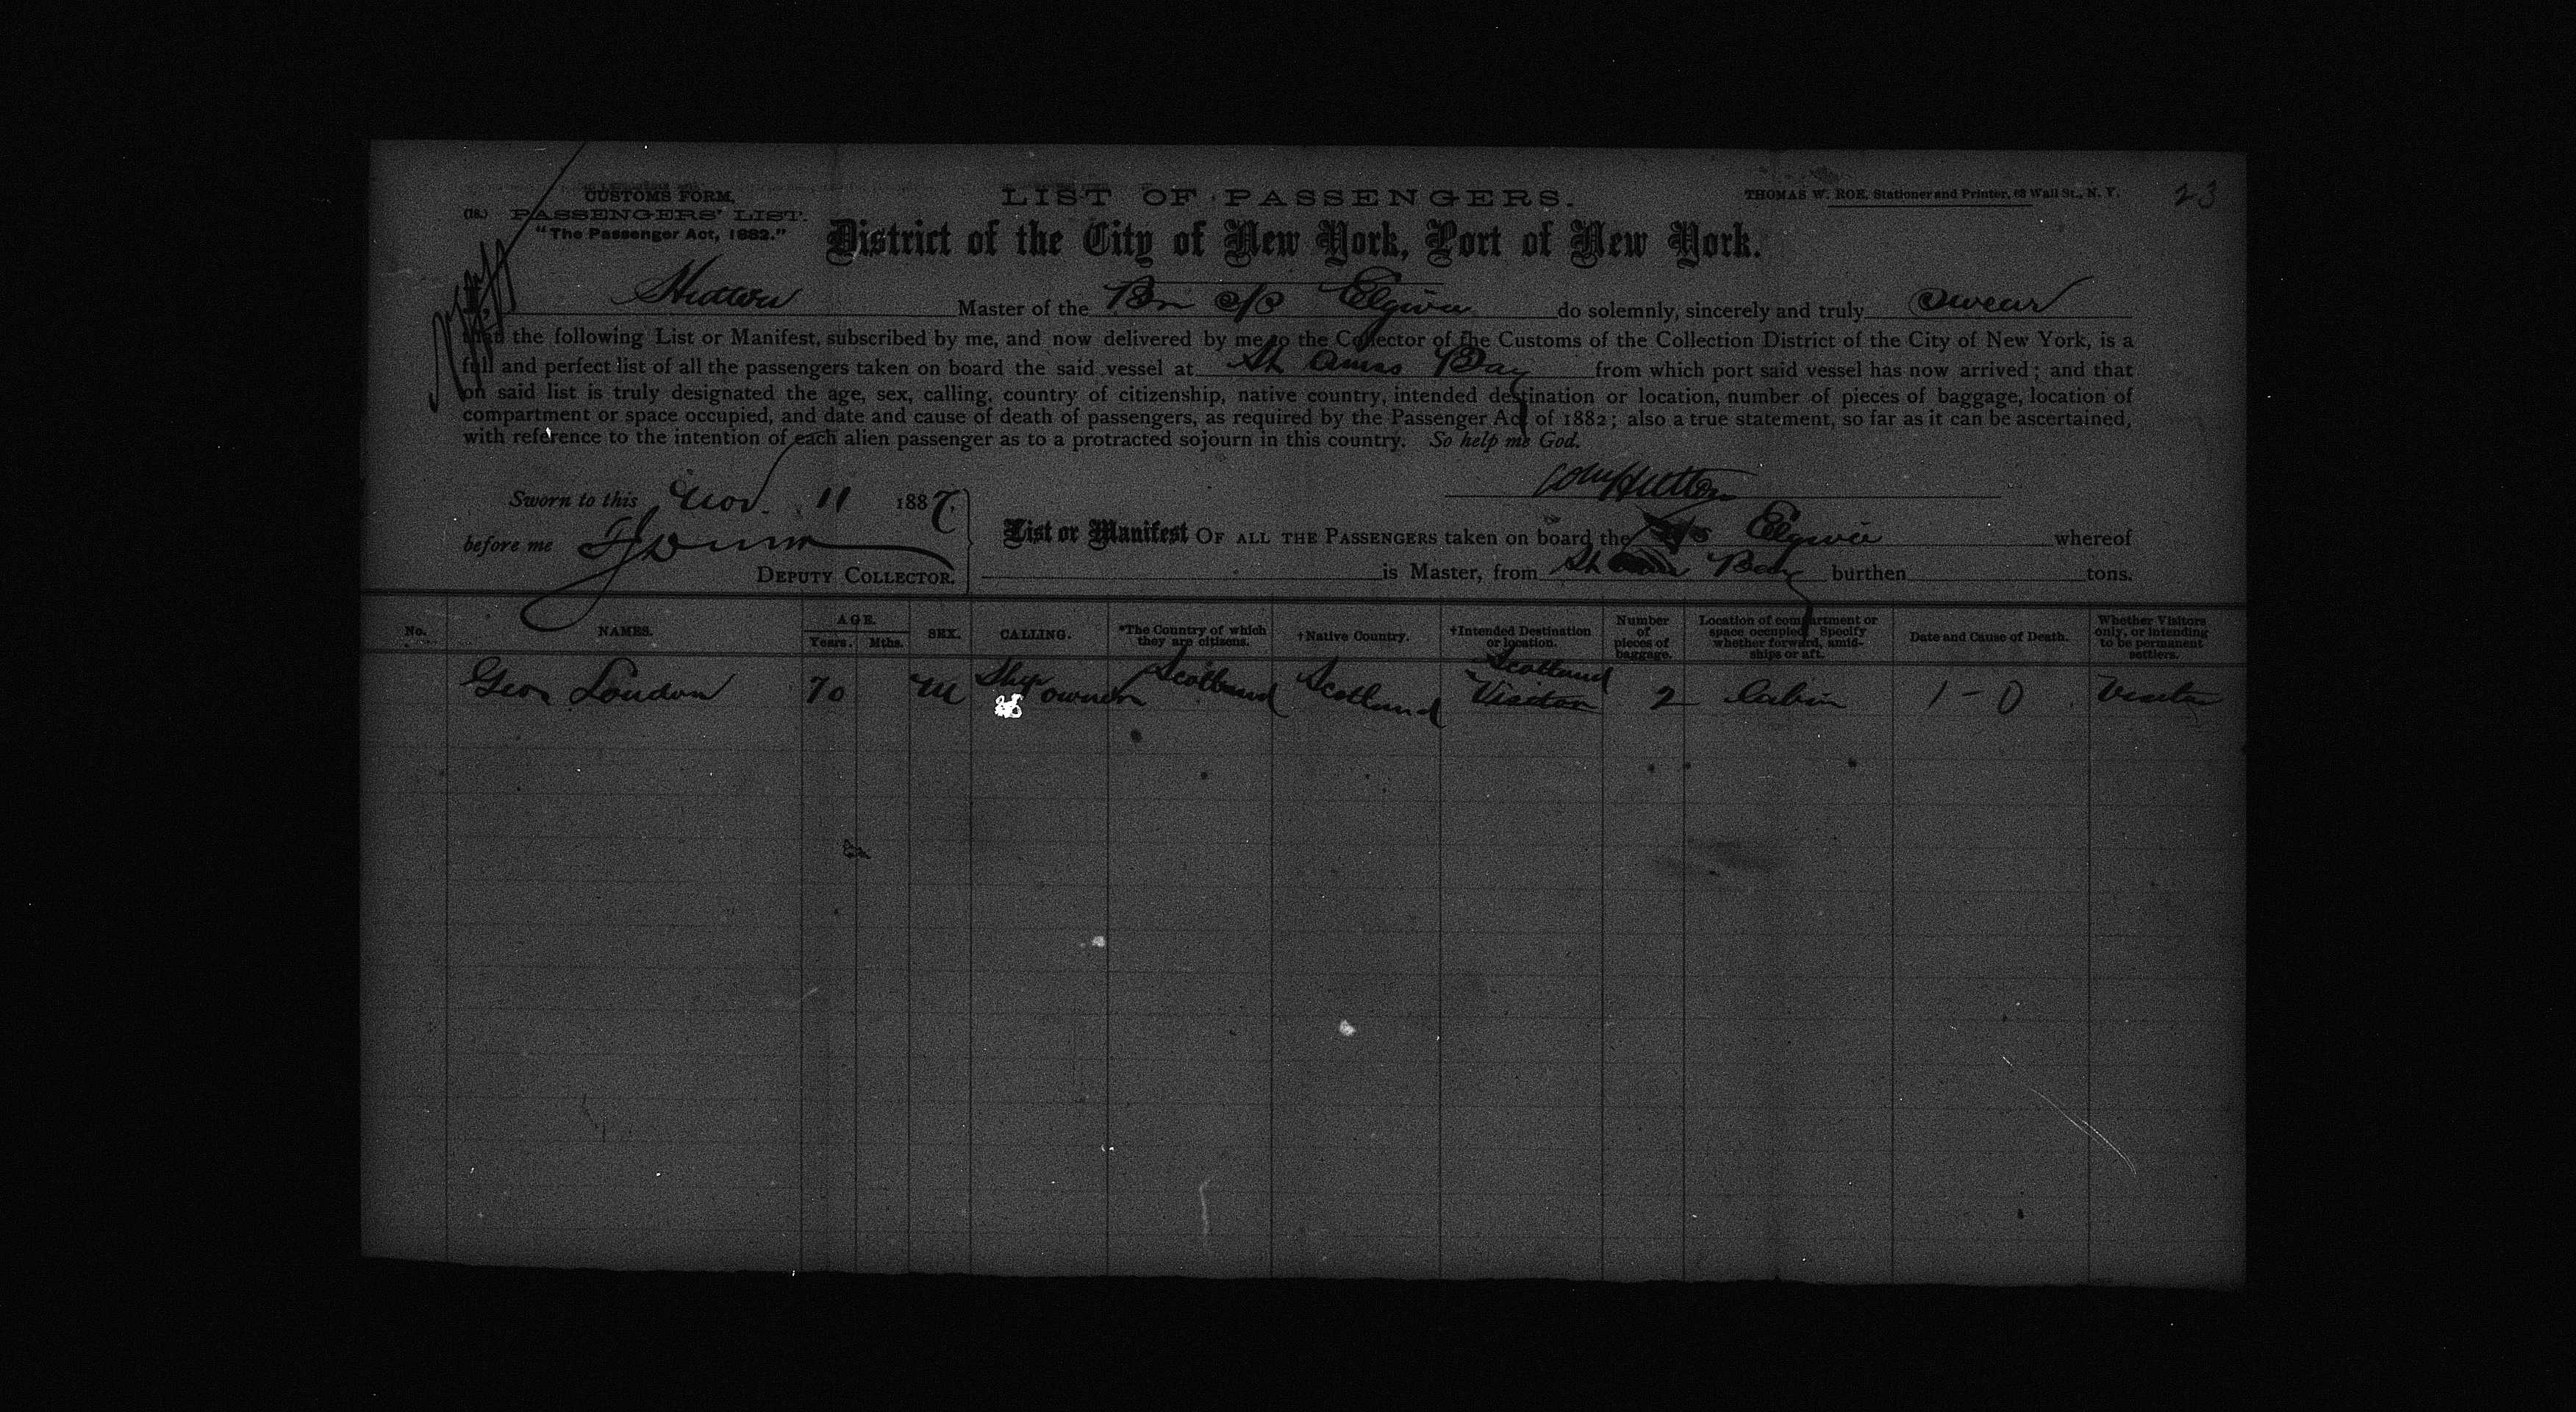 CUSTOMS FORM,
(18.) PASSENGERS' LIST.
"The Passenger Act, 1882."
LIST OF PASSENGERS.
THOMAS W. ROE, Stationer and Printer, 63 Wall St., N. Y.
23
District of the City of New York, Port of New York.
Hutton Master of the Br S/S Elgiva do solemnly, sincerely and truly swear
that the following List or Manifest, subscribed by me, and now delivered by me to the Collector of the Customs of the Collection District of the City of New York, is a
full and perfect list of all the passengers taken on board the said vessel at St Anns Bay from which port said vessel has now arrived; and that
on said list is truly designated the age, sex, calling, country of citizenship, native country, intended destination or location, number of pieces of baggage, location of
compartment or space occupied, and date and cause of death of passengers, as required by the Passenger Act of 1882; also a true statement, so far as it can be ascertained,
with reference to the intention of each alien passenger as to a protracted sojourn in this country. So help me God.
Hutton
Sworn to this Nov. 11 1887.
before me
DEPUTY COLLECTOR.
List or Manifest OF ALL THE PASSENGERS taken on board the S/S Elgiva whereof
is Master, from St Bay burthen tons.
No. NAMES. AGE. Years. Mths. SEX. CALLING. *The Country of which they are citizens. †Native Country. †Intended Destination or location. Number of pieces of baggage. Location of compartment or space occupied. Specify whether forward, amidships or aft. Date and Cause of Death. Whether Visitors only, or intending to be permanent settlers.
Geo Loudon 70 M Ship owner Scotland Scotland Scotland Visitor 2 Cabin 1 - 0 Visitor